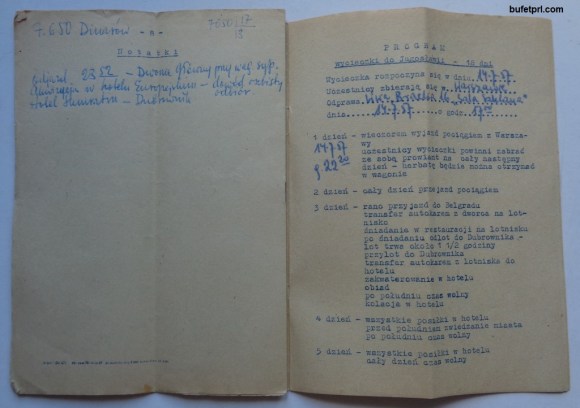 bufetprl.com
7.650 Dworów - 8 -
N o t a t k i
7650 17
18
52 - Dworzec Główny przy
w hotelu Europejskim - dowód osobisty
Hotel - Dubrovnik
P R O G R A M
Wycieczki do Jugosławii - 18 dni
Wycieczka rozpoczyna się w dniu 14.7.57
Uczestnicy zbierają się w Warszawie
Odprawa
dnia 14.7.57 w godz. 17
1 dzień - wieczorem wyjazd pociągiem z Warsza-
wy
14.7.57
uczestnicy wycieczki powinni zabrać
ze sobą prowiant na cały następny
g 22 20
dzień - herbatę będzie można otrzymać
w wagonie
2 dzień - cały dzień przejazd pociągiem
3 dzień - rano przyjazd do Belgradu
transfer autokarem z dworca na Lot-
nisko
śniadania w restauracji na Lotnisku
po śniadaniu odlot do Dubrownika -
lot trwa około 1 1/2 godziny
przylot do Dubrownika
transfer autokarem z lotniska do
hotelu
zakwaterowanie w hotelu
obiad
po południu czas wolny
kolacja w hotelu
4 dzień - wszystkie posiłki w hotelu
przed południem zwiedzanie miasta
po południu czas wolny
5 dzień - wszystkie posiłki w hotelu
cały dzień czas wolny